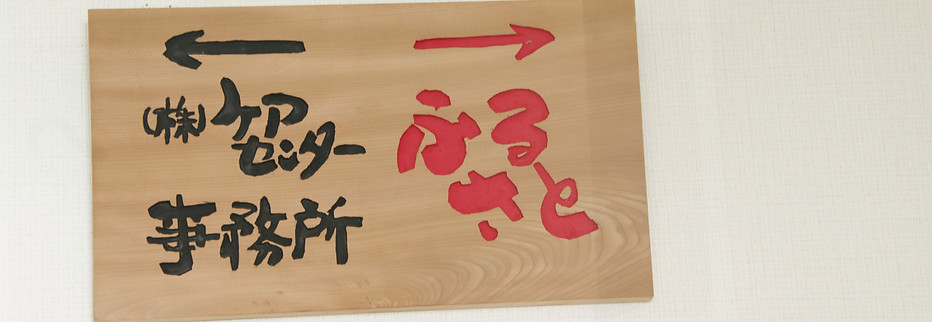 ← →
(株)ケア
センター
事務所
ふる
さと